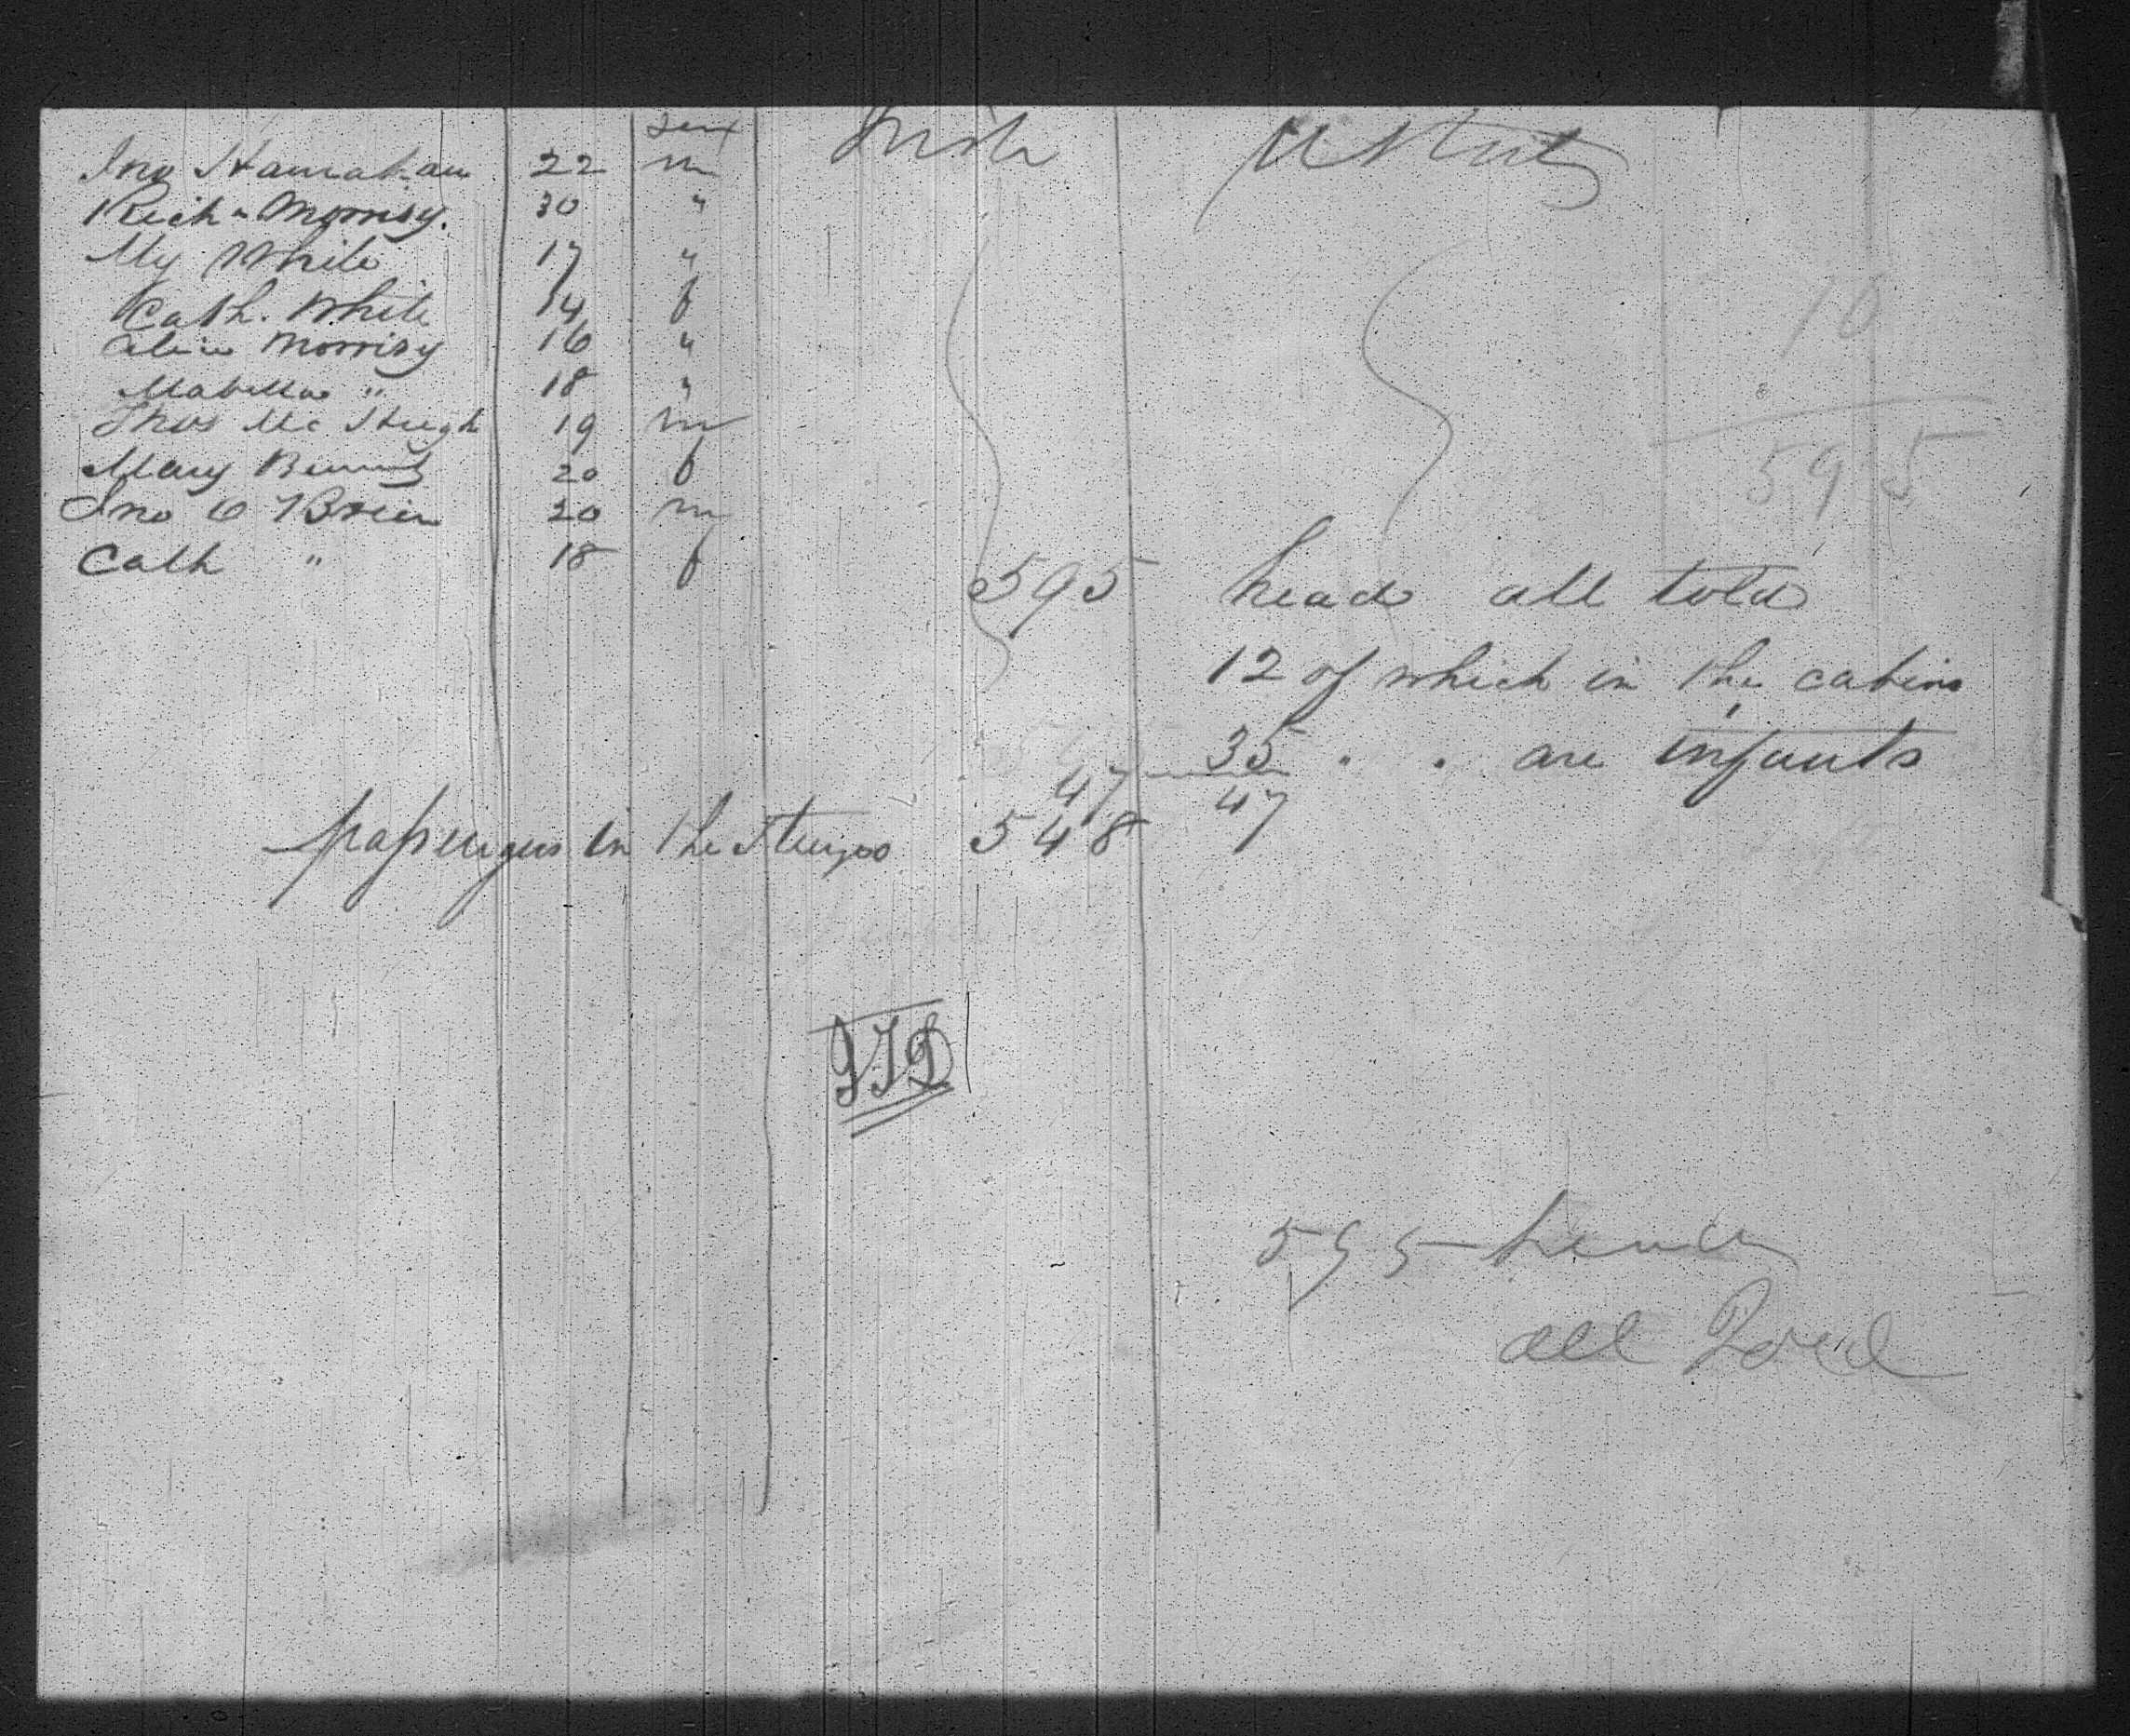 sex Irish U States
Jno Hanrahan 22 m
Rich Morrisy. 30 "
My White 17 "
Cath. White 14 f
Alice Morrisy 16 "
" 18 "
Thos Mc Hugh 19 m
Mary 20 f
Jno O Brien 20 m
Cath " 18 f
10
595
595 heads all told
12 of which in the cabins
35 " " are infants
47 47
passengers in the 548
595 heads
all Told